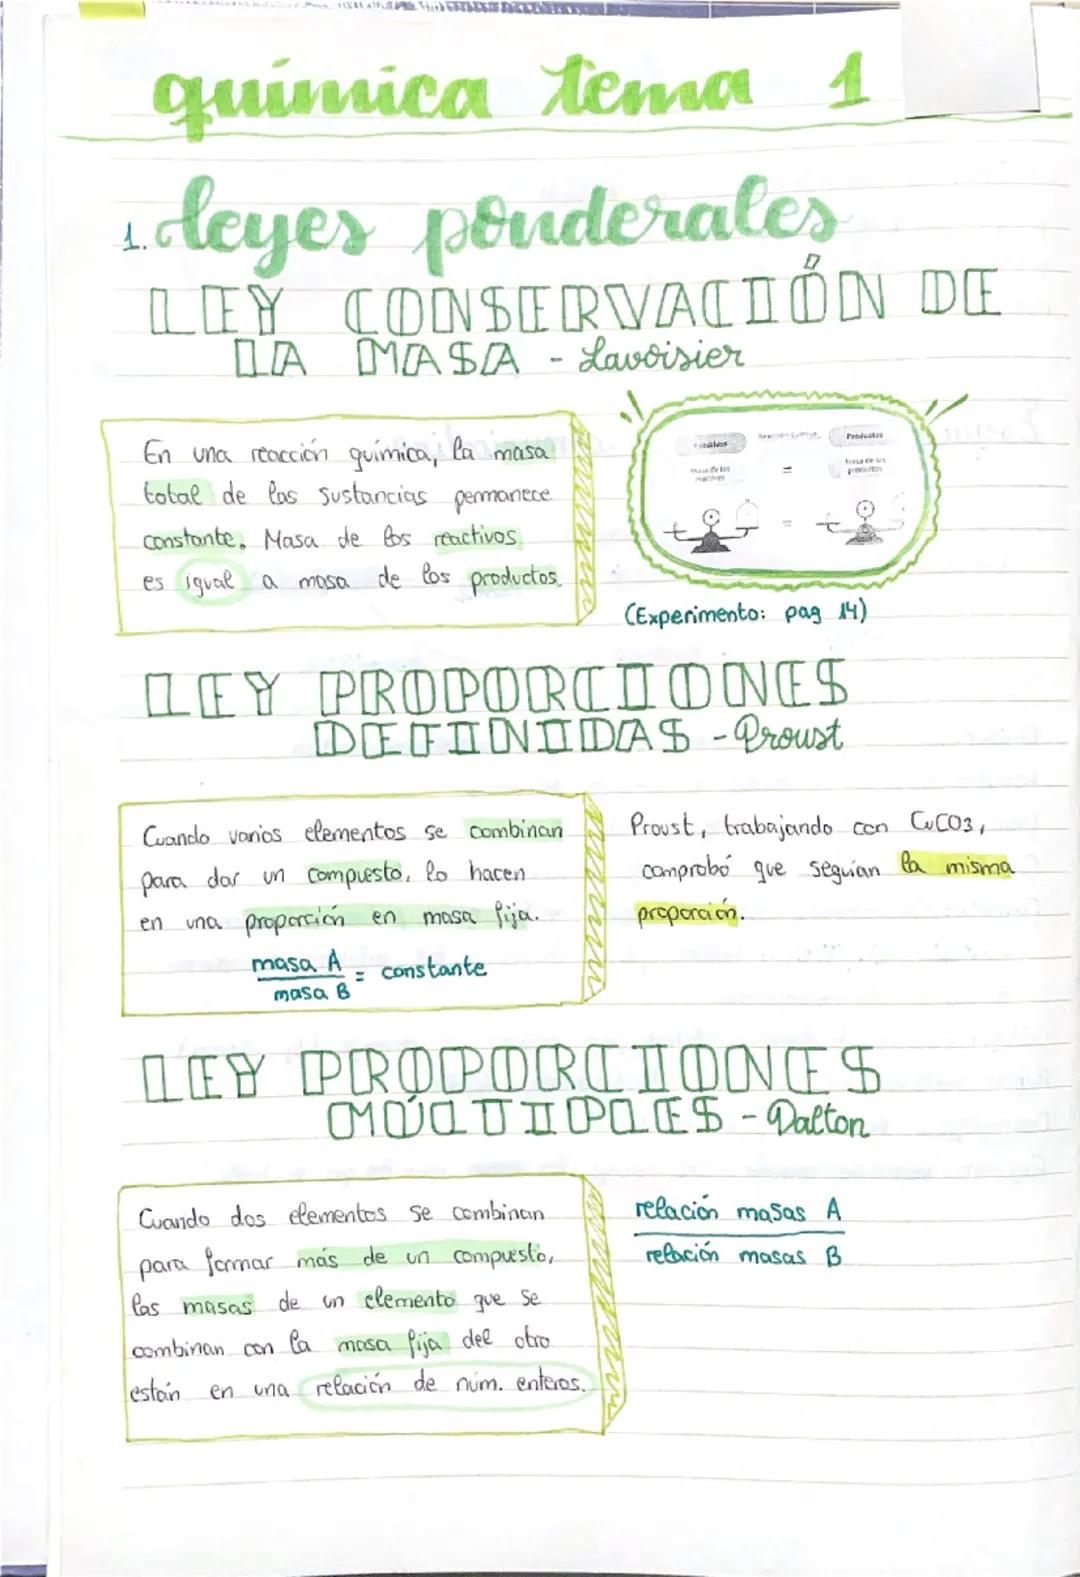 química tema 1
1. leyes ponderales
LEY CONSERVACIÓN DE
LA MASA - Lavoisier
En una reacción química, la masa
total de las sustancias permanece
constante. Masa de los reactivos
es igual a masa de los productos.
Productos
=
=
(Experimento: pag 14)
LEY PROPORCIONES
DEFINIDAS - Proust
Cuando varios elementos se combinan
para dar un compuesto, lo hacen
en una proporción en masa fija.
masa A
masa B
= constante
Proust, trabajando con CuCO3,
comprobó que seguían la misma
proporción.
LEY PROPORCIONES
MÚLTIPLES - Dalton
Cuando dos elementos se combinan
para formar más de un compuesto,
las masas de un elemento que se
combinan con la masa fija del otro
están en una relación de núm. enteros.
relación masas A
relación masas B